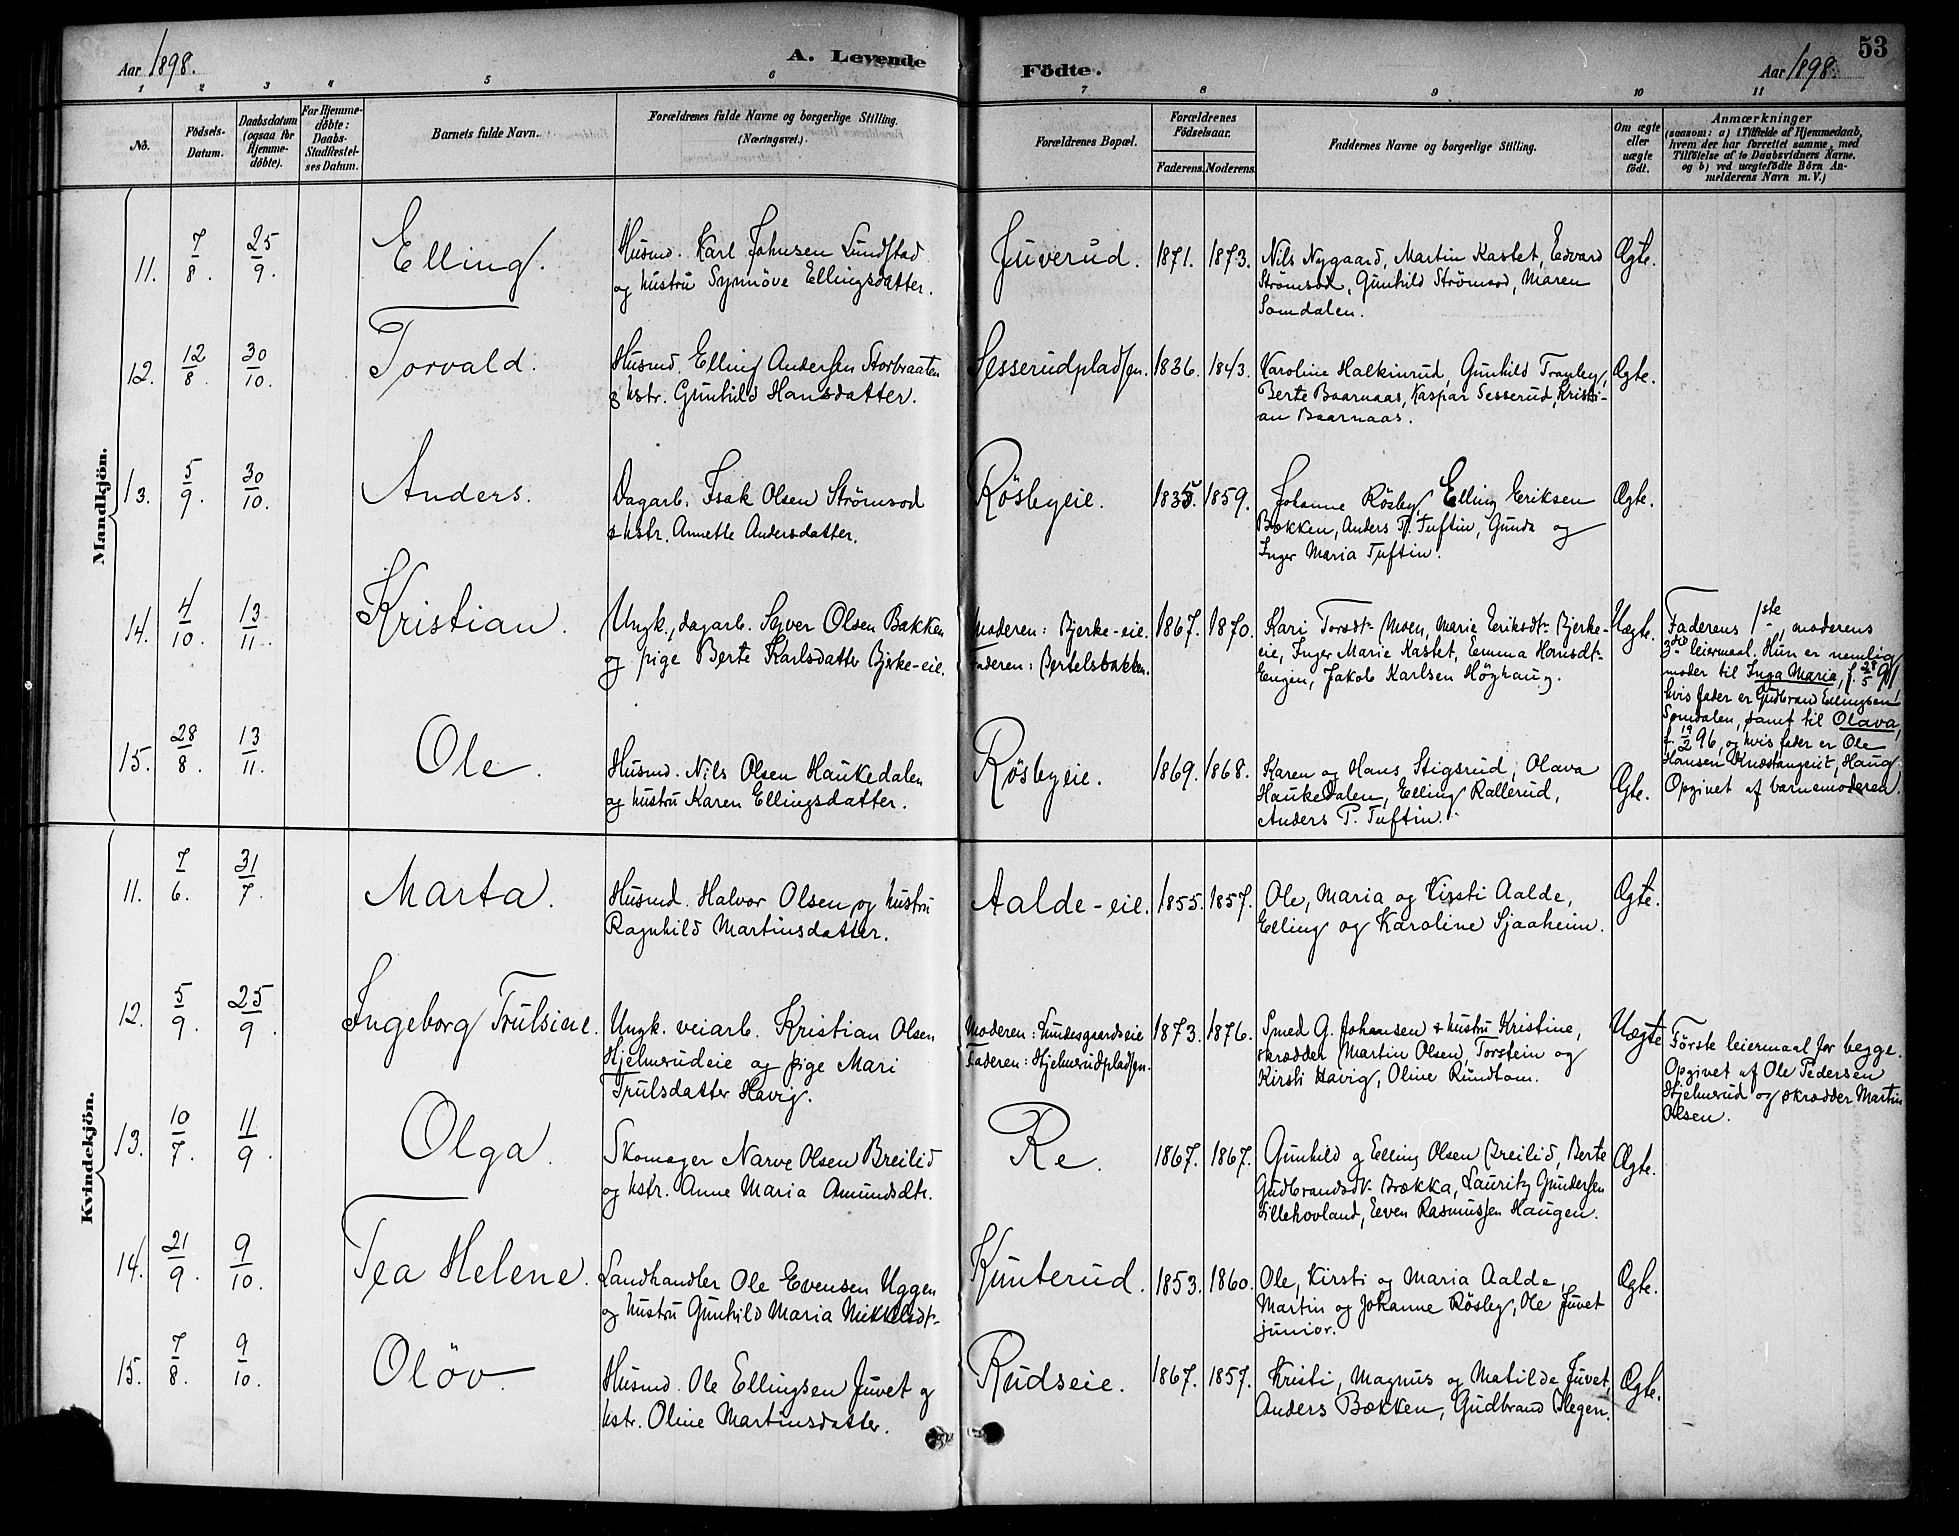 Aar 1898.
A. Levende
Födte.
Aar 1898.
53
1 2 3 4 5 6 7 8 9 10 11
No.
Födsels-Datum.
Daabsdatum (ogsaa for Hjemme-döbte).
For Hjemme-döbte: Daabs-Stadfæstel-ses Datum.
Barnets fulde Navn.
Forældrenes fulde Navne og borgerlige Stilling.
(Næringsvei.)
Forældrenes Bopæl.
Forældrenes Födselsaar.
Faderens. Moderens.
Faddernes Navne og borgerlige Stilling.
Om ægte eller uægte födt.
Anmærkninger
(saasom: a) i Tilfælde af Hjemmedaab,
hvem der har forrettet samme, med
Tilföielse af to Daabsvidners Navne,
og b) ved uægtefödte Börn An-
melderens Navn m. V.)
Mandkjön.
11. 7/8. 25/9. Elling.
Husmd. Karl Johnsen Lundstad
og hustru Synnöve Ellingsdatter.
Juverud. 1871. 1873.
Nils Nygaard, Martin Kastet, Edvard
Strömsod, Gunhild Strömsod, Maren
Somdalen.
Ægte.
12. 12/8. 30/10. Torvald.
Husmd. Elling Andersen Storbraaten
& hstr. Gunhild Hansdatter.
Sesserudpladsen. 1836. 1843.
Karoline Halkinrud, Gunhild Tranby,
Berte Baarnaas, Kaspar Sesserud, Kristi-
an Baarnaas.
Ægte.
13. 5/9. 30/10. Anders.
Dagarb. Isak Olsen Strömsod
& hstr. Annette Andersdatter.
Rösbyeie. 1835. 1859.
Johanne Rösby, Elling Eriksen
Bækken, Anders P. Tuftin, Gunda og
Inger Maria Tuftin.
Ægte.
14. 4/10. 13/11. Kristian.
Ungk., dagarb. Syver Olsen Bakken
og pige Berte Karlsdatter Bjerke-eie.
Moderen: Bjerke-eie.
Faderen: Bertelsbakken.
1867. 1870.
Kari Torsdtr Moen, Marie Eriksdtr Bjerke-
eie, Inger Marie Kastet, Emma Hansdtr
Engen, Jakob Karlsen Höghaug.
Uægte.
Faderens 1ste, moderens
3die leiermaal. Hun er nemlig
moder til Inga Maria, f. 28/5 91,
hvis fader er Gudbran Ellingsen
Somdalen, samt til Olava,
f. 19/2 96, og hvis fader er Ole
Hansen Knæstangeiet, Haug
Opgivet af barnemoderen.
15. 28/8. 13/11. Ole.
Husmd. Nils Olsen Haukedalen
og hustru Karen Ellingsdatter.
Rösbyeie. 1869. 1868.
Karen og Hans Stigsrud, Olava
Haukedalen, Elling Rallerud,
Anders P. Tuftin.
Ægte.
Kvindekjön.
11. 7/6. 31/7. Marta.
Husmd. Halvor Olsen og hustru
Ragnhild Martinsdatter.
Aalde-eie. 1855. 1857.
Ole, Maria og Kirsti Aalde,
Elling og Karoline Sjaaheim.
Ægte.
12. 5/9. 25/9. Ingeborg Trulsine.
Ungk. veiarb. Kristian Olsen
Hjelmerudeie og pige Mari
Trulsdatter Havig.
Moderen: Lundesgaardseie
Faderen: Hjelmerudpladsen.
1873. 1876.
Smed G. Johansen & hustru Kristine,
skrædder Martin Olsen, Torstein og
Kirsti Havig, Oline Rundtom.
Uægte
Förste leiermaal for begge.
Opgivet af Ole Pedersen
Hjelmerud og skrædder Martin
Olsen.
13. 10/7. 11/9. Olga.
Skomager Narve Olsen Breilid
og hstr. Anne Maria Amundsdtr.
Re. 1867. 1867.
Gunhild og Elling Olsen Breilid, Berte
Gudbrandsdtr Brækka, Lauritz Gundersen
Lillehovland, Even Rasmussen Haugen.
Ægte.
14. 21/9. 9/10. Tea Helene.
Landhandler Ole Evensen Uggen
og hustru Gunhild Maria Mikkelsdtr
Kunterud. 1853. 1860.
Ole, Kirsti og Maria Aalde,
Martin og Johanne Rösby, Ole Juvet
junior.
Ægte.
15. 7/8. 9/10. Olöv.
Husmd. Ole Ellingsen Juvet og
hstr. Oline Martinsdatter.
Rudseie. 1867. 1857.
Kristi, Magnus og Matilde Juvet,
Anders Bækken, Gudbrand Hegen.
Ægte.